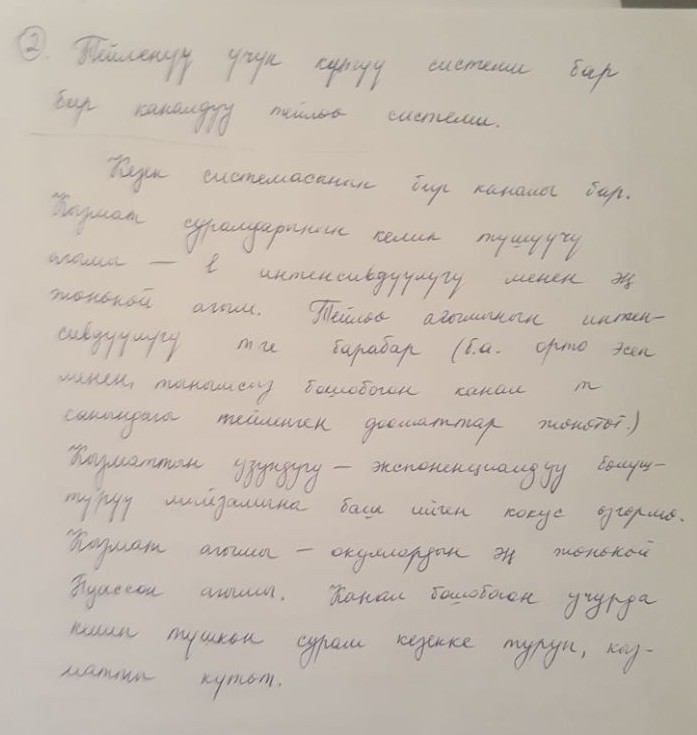 2. Тейленүү үчүн күтүү системи бар
бир каналдуу тейлөө системи.
Кезек системасынын бир каналы бар.
Кызмат суралдарынын келип түшүүчү
агымы — λ интенсивдүүлүгү менен эң
жөнөкөй агым. Тейлөө агымынын интен-
сивдүүлүгү m ге барабар (б.а. орто эсеп
менен, тынымсыз бошобогон канал m
санындагы тейленген дооматтар жөнөтөт.)
Кызматтын узундугу — экспоненциалдуу бөлүш-
түрүү мыйзамына баш ийген кокус өзгөрмө.
Кызмат агымы — окуялардын эң жөнөкөй
Пуассон агымы. Канал бошобогон учурда
келип түшкөн сурам кезекке туруп, кыз-
матты күтөт.